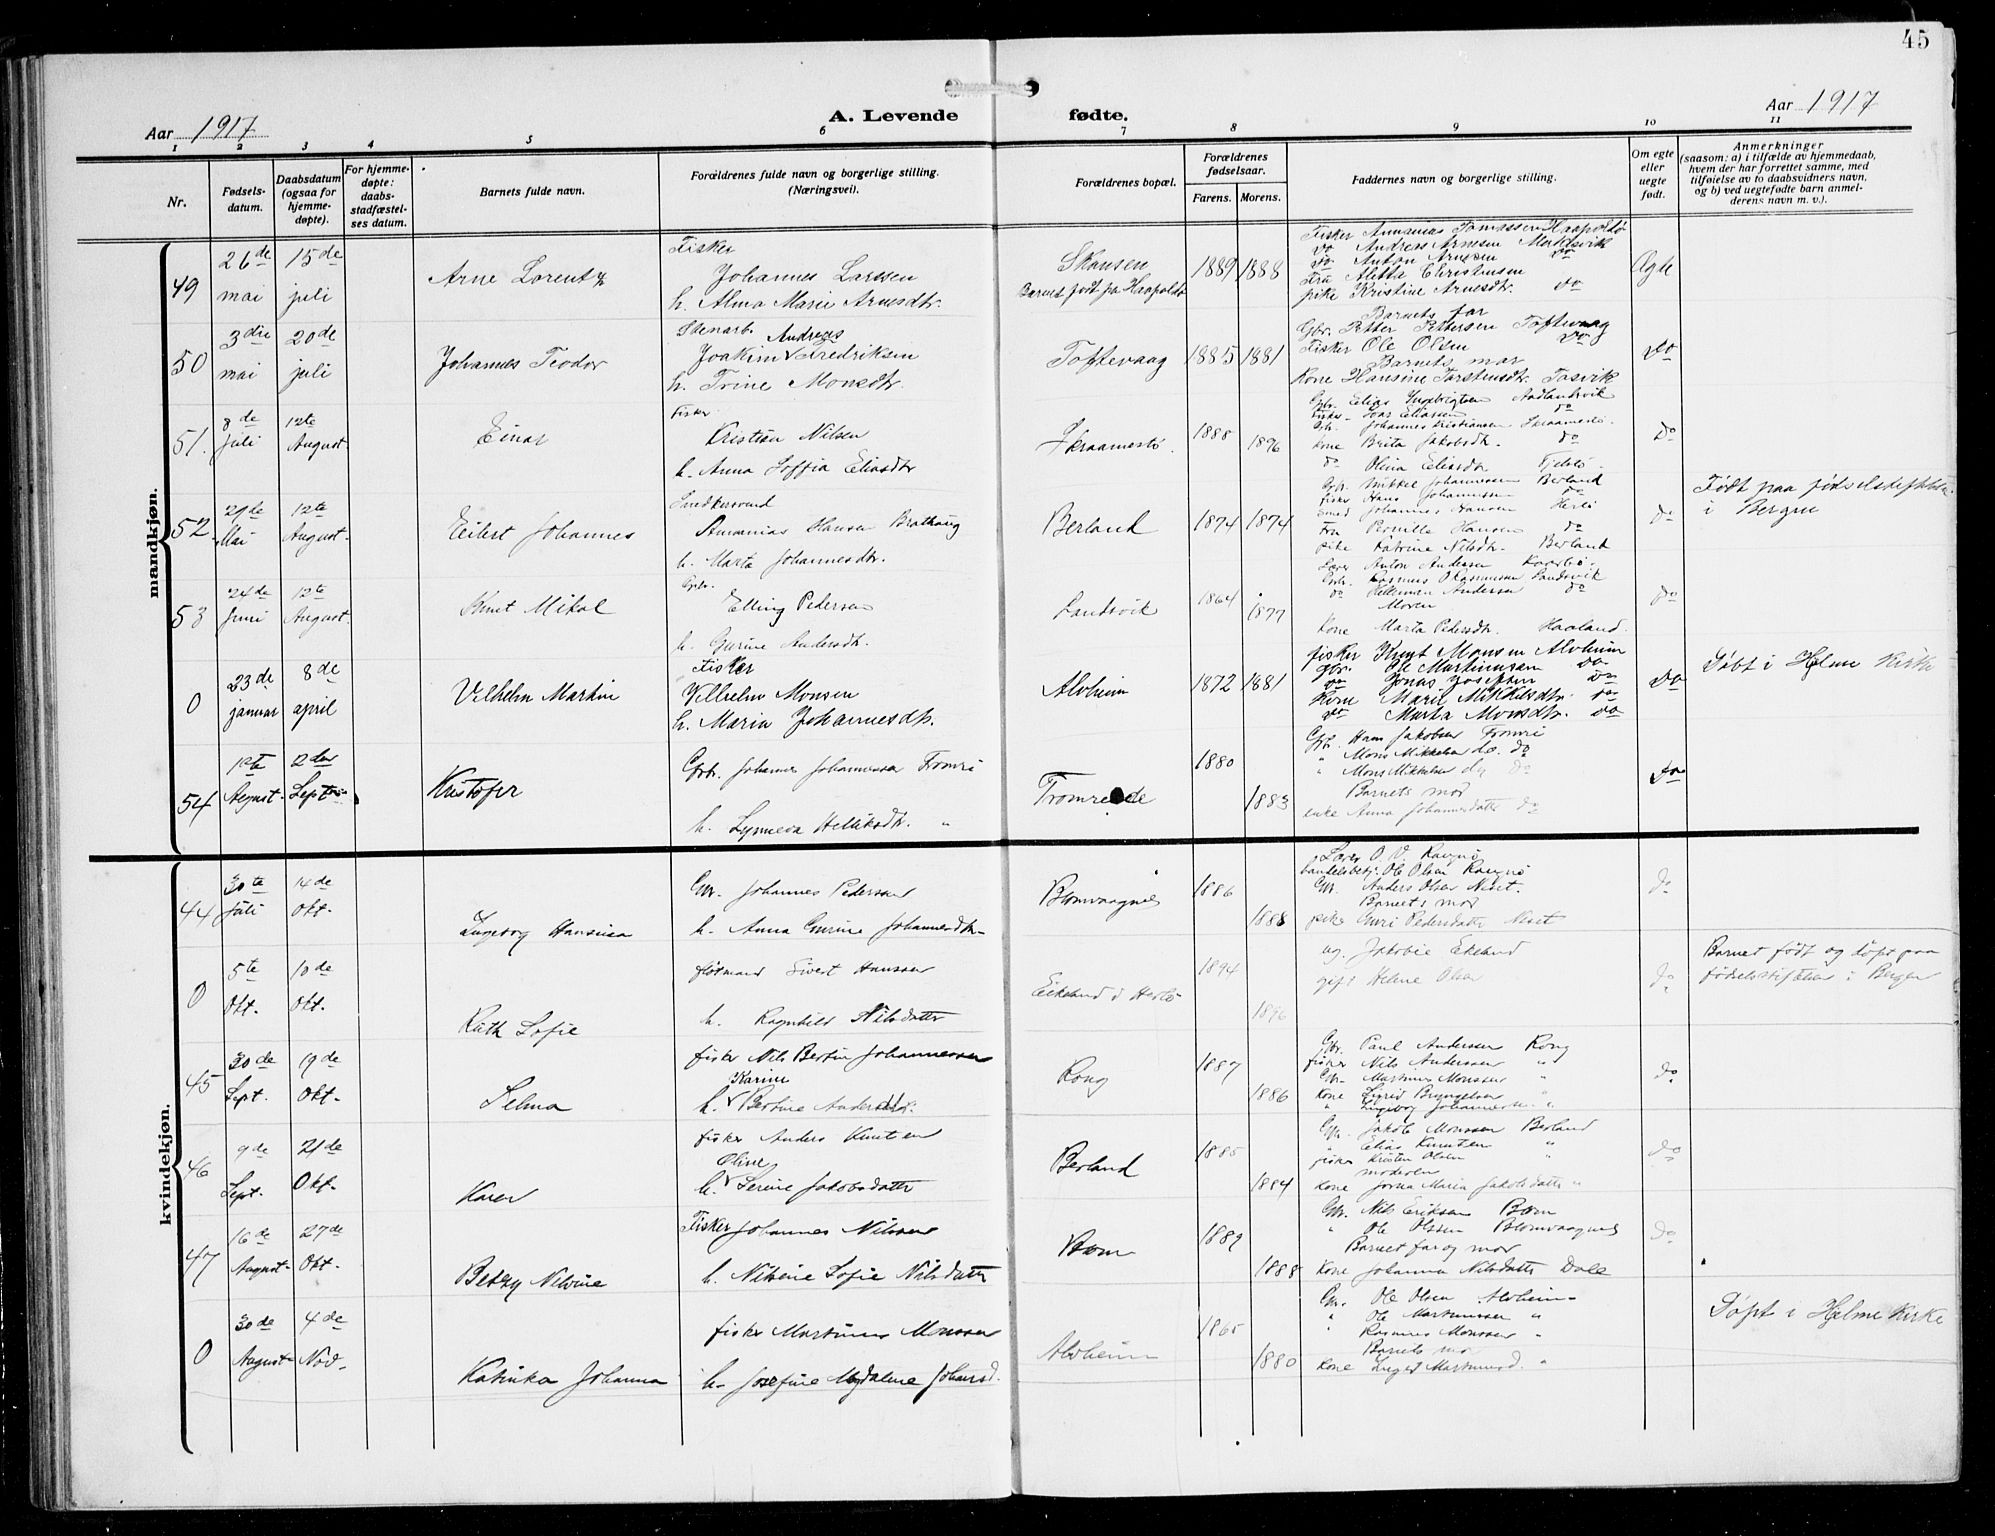 45
Aar 1917
A. Levende fødte.
Aar 1917
1 2 3 4 5 6 7 8 9 10 11
Nr.
Fødsels-
datum.
Daabsdatum
(ogsaa for
hjemme-
døpte).
For hjemme-
døpte:
daabs-
stadfæstel-
ses datum.
Barnets fulde navn.
Forældrenes fulde navn og borgerlige stilling.
(Næringsvei).
Forældrenes bopæl.
Forældrenes
fødselsaar.
Farens. Morens.
Faddernes navn og borgerlige stilling.
Om egte
eller
uegte
født.
Anmerkninger
(saasom: a) i tilfælde av hjemmedaab,
hvem der har forrettet samme, med
tilføielse av to daabsvidners navn,
og b) ved uegtefødte barn anmel-
derens navn m. v.).
mandkjøn.
49
26de
mai
15de
juli
Arne Lorentz
Fisker
Johannes Larssen
h. Alma Marie Arnesdtr.
Skansen
Barnet født på Haapoldø
1889 1888
Fisker Annanias Tomassen Haapoldø
do Andreas Arnesen Merkesvik
do Anton Arnesen do
Fru Alette Christensen
pike Kristine Arnesdtr. do
Ægte
50
3die
mai
20de
juli
Johannes Teodor
Stenarb. Andreas
Joakim Fredriksen
h. Trine Monsdtr.
Toftevaag
1885 1881
Barnets far
Gbr. Petter Pettersen Toftevaag
Fisker Ole Olsen do
Barnets mor
Kone Hansine Torstensdtr. Tosvik
do
51.
8de
juli
12te
August
Einar
Fisker
Kristian Nilsen
h. Anna Soffia Eliasdtr
Skraamestø.
1888
1896
Gbr. Elias Ingebrigtsen Aadlandsvik
Fisker Ivar Eliassen do
Gbr. Johannes Kristiansen Skraamestø.
Kone Brita Jakobsdtr. do
do Olina Eliasdtr Fjelstø.
do
52.
29de
Mai
12te
August
Eilert Johannes
Snedkersvend
Annanias Hansen Brathaug
h. Marta Johannesdtr.
Berland
1874 1874
Gbr. Mikkel Johannessen Berland
Fisker Hans Johannessen do
Smed Johannes Hansen Herlø
Fru Pernille Hansen do
pike Katrine Nilsdtr. Berland
do
Født paa fødselsstiftelsen
i Bergen
53
24de
Juni
12te
August.
Knut Mikal
Gbr.
Elling Pedersen
h. Gurine Andersdtr.
Landsvik
1864
1877
Lærer Anton Andersen
Gbr. Rasmus O Rasmussen Landsvik
do Helleman Andersen do
Moren
Kone Marta Pedersdtr. Haaland.
do
0
23de
januar
8de
april
Vilhelm Martin
Fisker
Vilhelm Monsen
h. Maria Johannesdtr.
Alvheim
1872 1881
fisker Knut Monsen Alvheim
gbr. Ole Martinussen do
do Jonas Josefsen do
Kone Marie Mikkelsdtr. do
do Marta Monsdtr. do
do
Døbt i Hjelme Kirke
54
12te
August
2den
Septbr
Kristofer
Gbr. Johannes Johannessen Tromrei
h. Synneva Helliksdtr. "
Tromreide
1880
1883
Gbr. Hans Jakobsen Tromrei
" Mons Mikkelsen do. do
" Mons Mikkelsen dy do
Barnets mor
enke Anna Johannesdatter do
do
kvindekjøn.
44
30te
Juli
14de
Okt.
Ingeborg Hansina
Gbr. Johannes Pedersen
h. Anna Gurine Johannesdtr
Blomvaagnes
1886
1888
Lærer O. V. Rangnø
handelsbetj. Ole Olsen Rangnø
Gbr. Anders Olsen Neset.
Barnets mor
pike Guri Pedersdatter Neset
do
0
5te
Okt.
10de
Okt.
Ruth Sofie
fløtmand Sivert Hanssen
h. Ragnhild Nilsdatter
Eikeland i Herlø
1894
1896
ug. Jakobie Ekeland
gift Helene Olsen
do
Barnet født og døpt paa
fødselsstiftelsen i Bergen
45
30de
Sept.
19de
Okt.
Selma
fisker Nils Bertin Johannessen
Karine
h. Bertine Andersdtr.
Rong
1887
1886
Gbr. Paul Andersen Rong
fisker Nils Andersen "
Gbr. Martinus Monssen "
kone Sigrid Brynjelsen "
" Ingeborg Johannesen "
do
46
9de
Sept.
21de
Okt.
Karen
fisker Anders Knutsen
Oline
h. Serine Jakobsdatter
Berland
1885
1884
Gbr. Jakob Monssen Berland
" Elias Knutsen "
fisker Kristen Olsen "
moderen
kone Maria Jakobsdatter "
do
47
16de
August
27de
Okt.
Betzy Nilsine
Fisker Johannes Nilssen
h. Nilsine Sofie Nilsdatter
Blom
1889
1888
Gbr. Nils Eriksen Blom
" Ole Olsen Blomvaagnes
Barnet far og mor
kone Johanna Nilsdatter Dale
do
0
30de
August
4de
Nov.
Katinka Johanna
fisker Martinus Monssen
h. Josefine Magdalene Johansd.
Alvheim
1865
1880
Gbr. Ole Olsen Alvheim
" Ole Martinussen "
" Rasmus Monssen "
Barnets mor
kone Inger Martinusd. "
Døpt i Hjelme Kirke